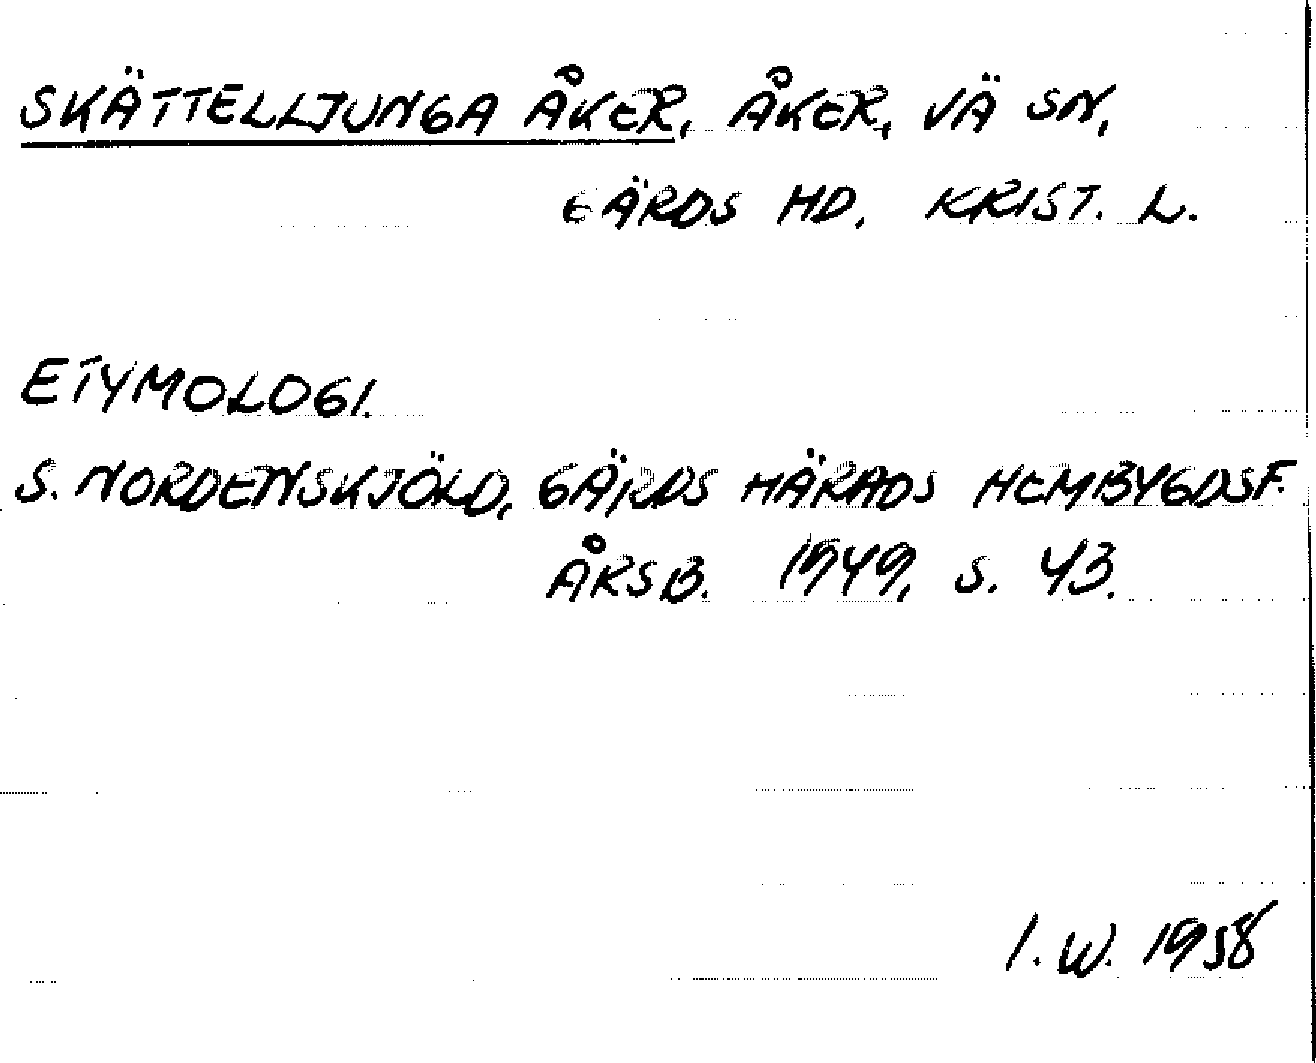 SKÄTTELLJUNGA ÅKER, ÅKER, VÄ SN,
GÄRDS HD, KRIST. L.
ETYMOLOGI.
S. NORDENSKJÖLD, GÄRDS HÄRADS HEMBYGDSF.
ÅRSB. 1949, S. 43.
I. W. 1958